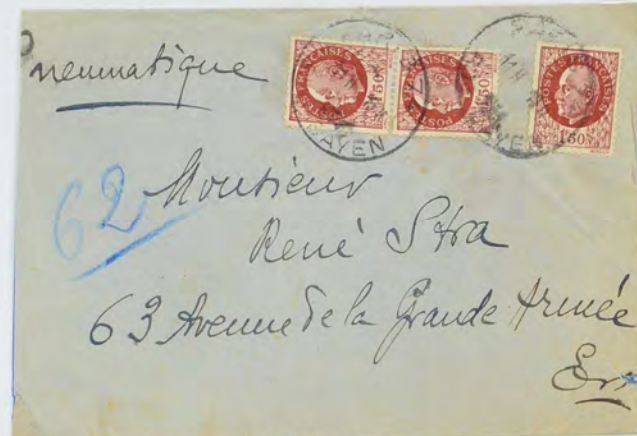 pneumatique
POSTES FRANÇAISES
1F50
POSTES FRANÇAISES
1F50
POSTES FRANÇAISES
1F50
62
Monsieur
René Stra
63 Avenue de la Grande Armée